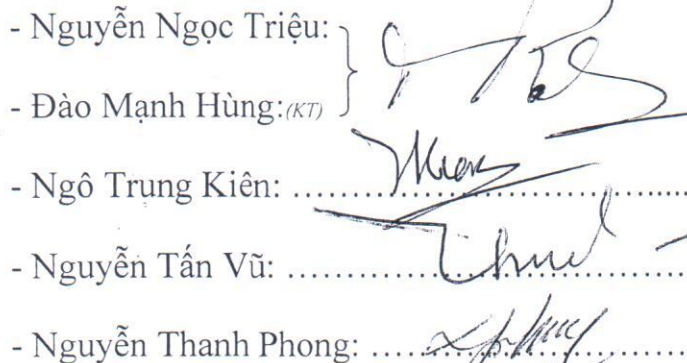 - Nguyễn Ngọc Triệu:
- Đào Mạnh Hùng:(KT)
- Ngô Trung Kiên: ................................
- Nguyễn Tấn Vũ: ................................
- Nguyễn Thanh Phong: ................................